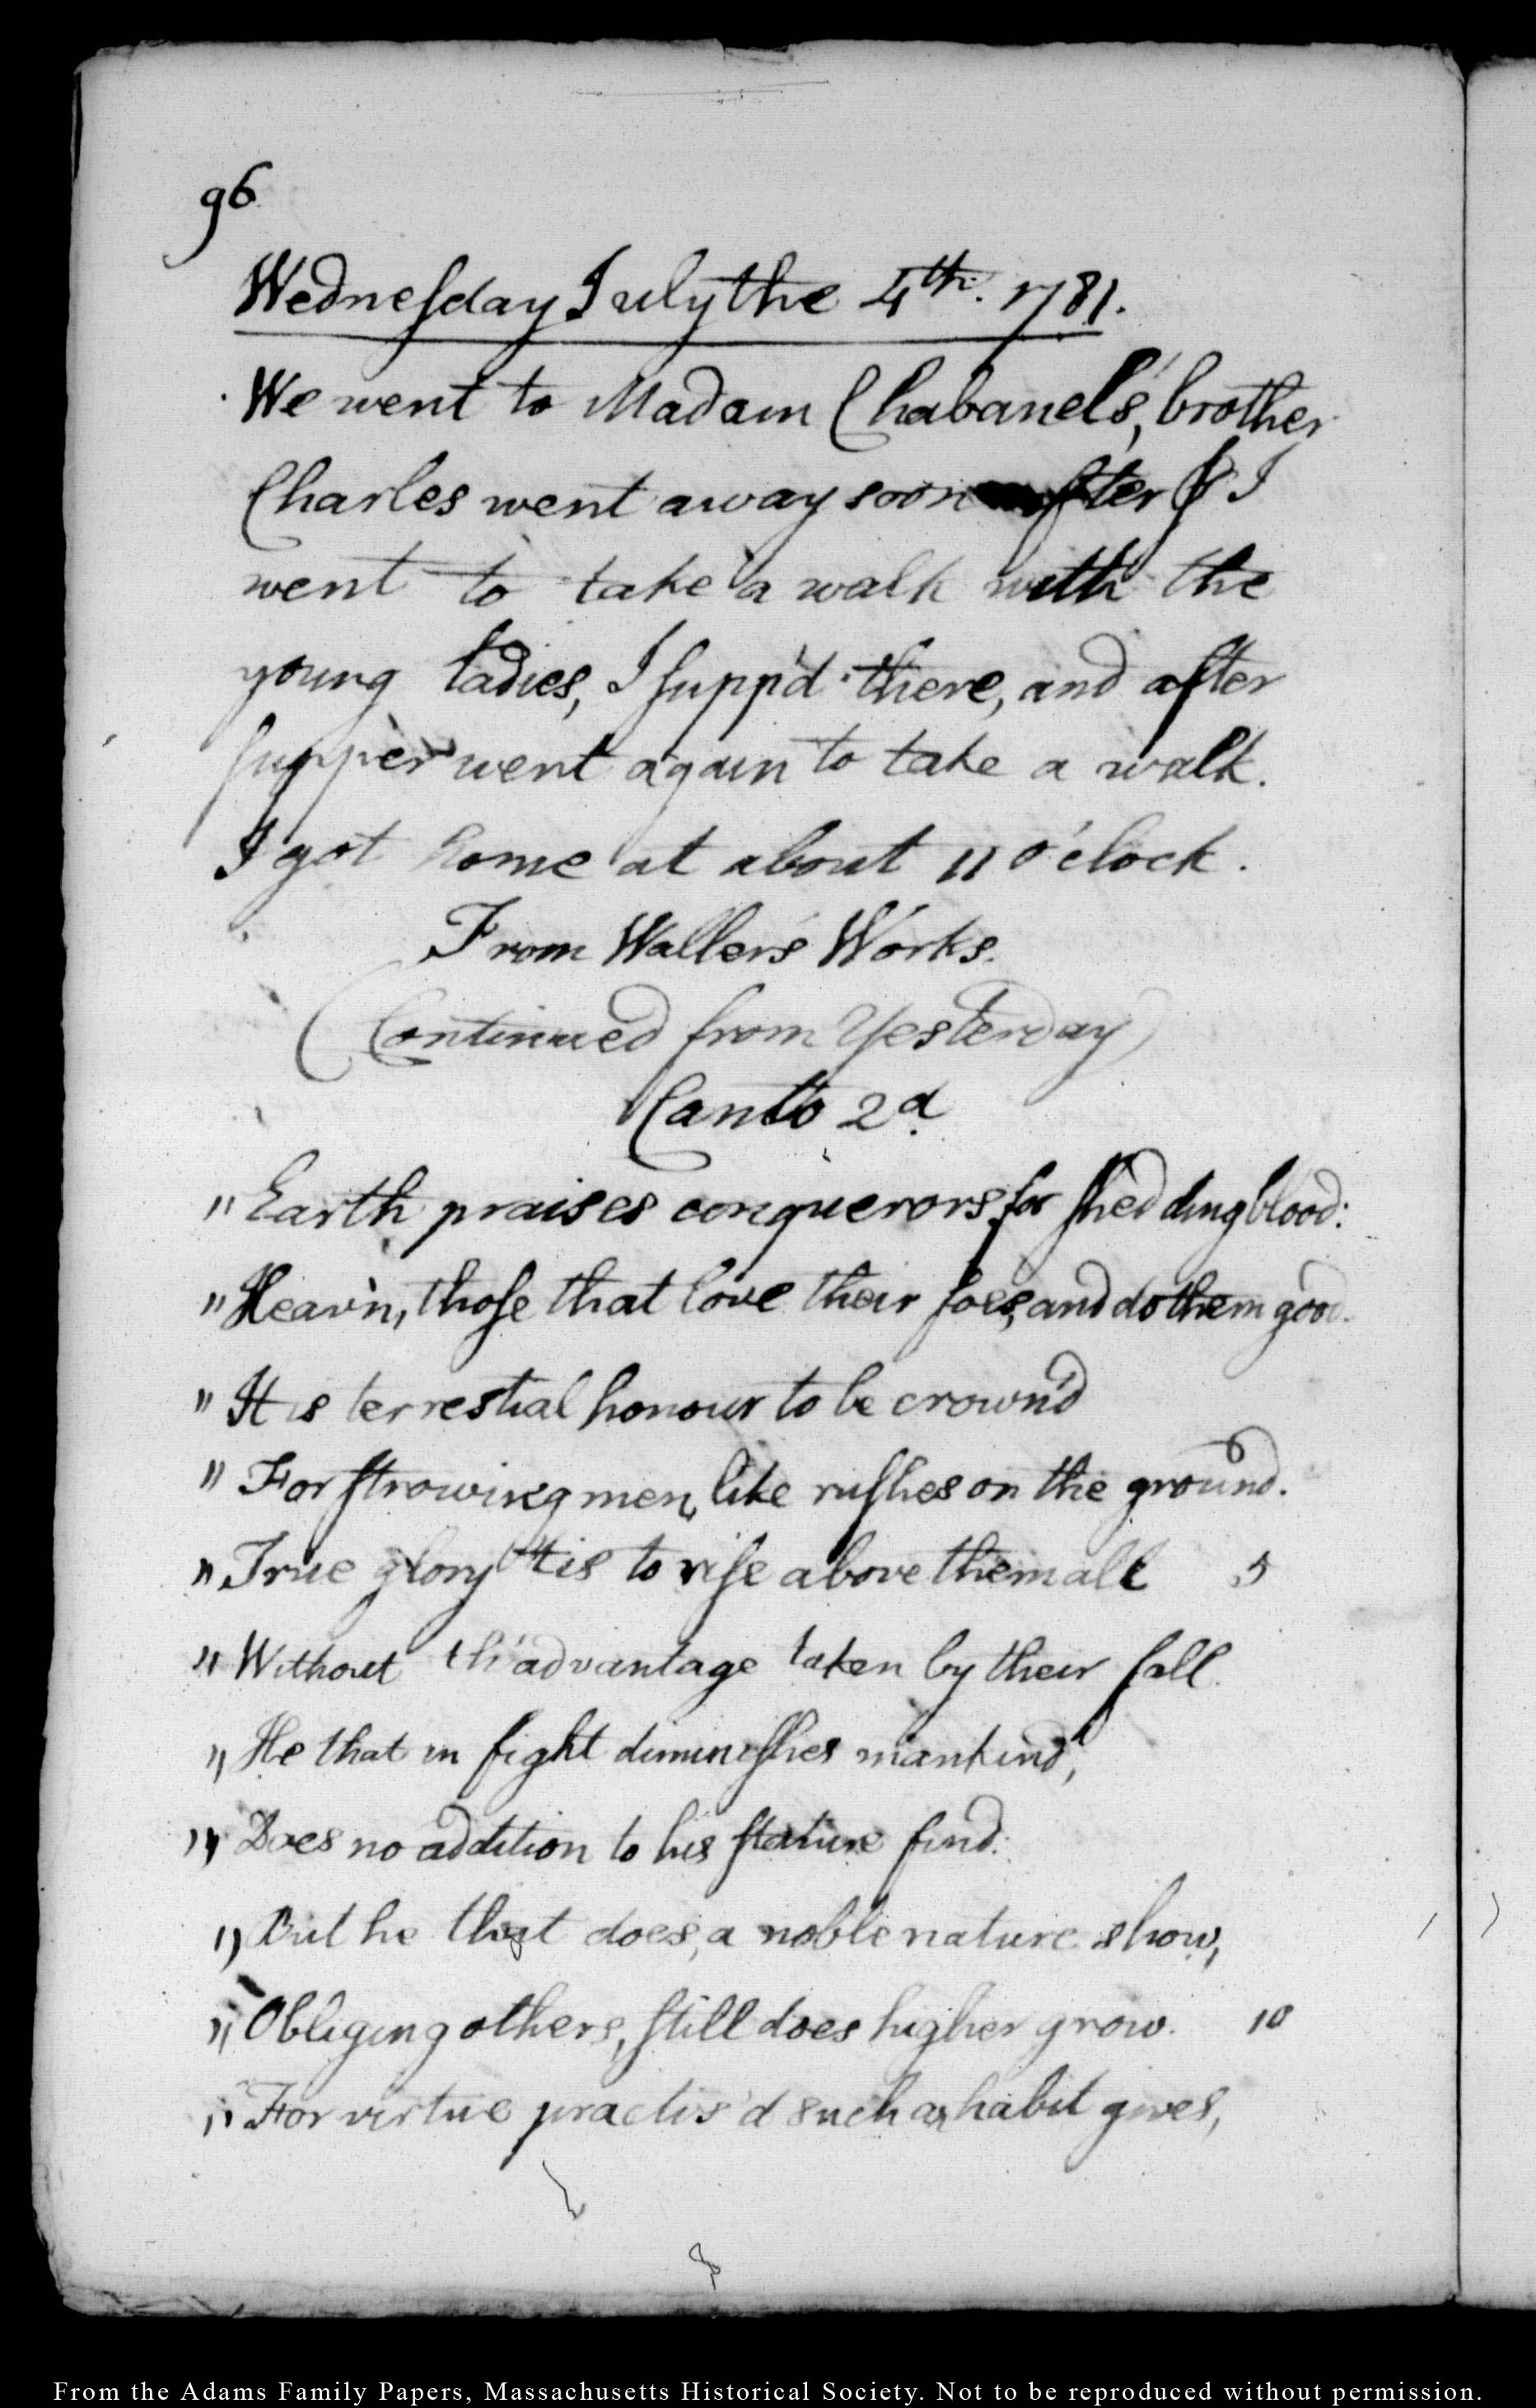 96
Wednesday July the 4th. 1781.
We went to Madam Chabanel's, brother
Charles went away soon after & I
went to take a walk with the
young ladies, I supp'd there, and after
supper went again to take a walk.
I got home at about 11 o'clock.
From Waller's Works.
(Continued from Yesterday)
Canto 2d.
"Earth praises conquerors for shedding blood:
"Heav'n, those that love their foes, and do them good.
"It is terrestial honour to be crown'd
"For strowing men, like rushes on the ground.
"True glory 'tis to rise above them all 5
"Without th' advantage taken by their fall.
"He that in fight diminishes mankind,
"Does no addition to his stature find:
"But he that does, a noble nature show,
"Obliging others, still does higher grow. 10
"For virtue practis'd such a habit gives,
From the Adams Family Papers, Massachusetts Historical Society. Not to be reproduced without permission.